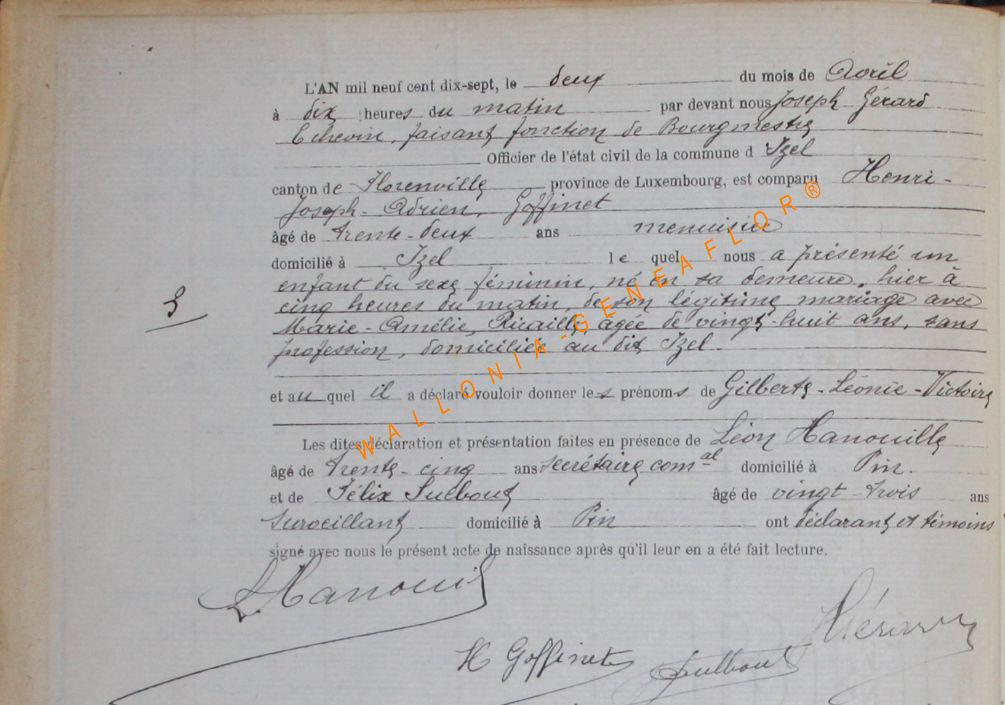 L'AN mil neuf cent dix-sept, le deux du mois de Avril
à dix heures du matin par devant nous Joseph Gérard
Echevin, faisant fonction de Bourgmestre
Officier de l'état civil de la commune d Izel
canton de Florenville province de Luxembourg, est comparu Henri-
Joseph-Adrien, Goffinet
âgé de trente-deux ans menuisier
domicilié à Izel le quel nous a présenté un
enfant du sexe féminin, né en sa demeure, hier à
5
cinq heures du matin, de son légitime mariage avec
Marie-Amélie, agée de vingt-huit ans, sans
profession, domiciliée au dit Izel.
et au quel il a déclaré vouloir donner les prénoms de Gilberte-Léonie-Victoire
Les dites déclaration et présentation faites en présence de Léon Hanouille
âgé de trente-cinq ans secrétaire comal domicilié à Pin.
et de Félix Sulbout âgé de vingt-trois ans
surveillant domicilié à Pin ont déclarant et témoins
signé avec nous le présent acte de naissance après qu'il leur en a été fait lecture.
L. Hanouil
H Goffinet
Sulbout
Gérard
WALLONIA-GENEAFLOR®